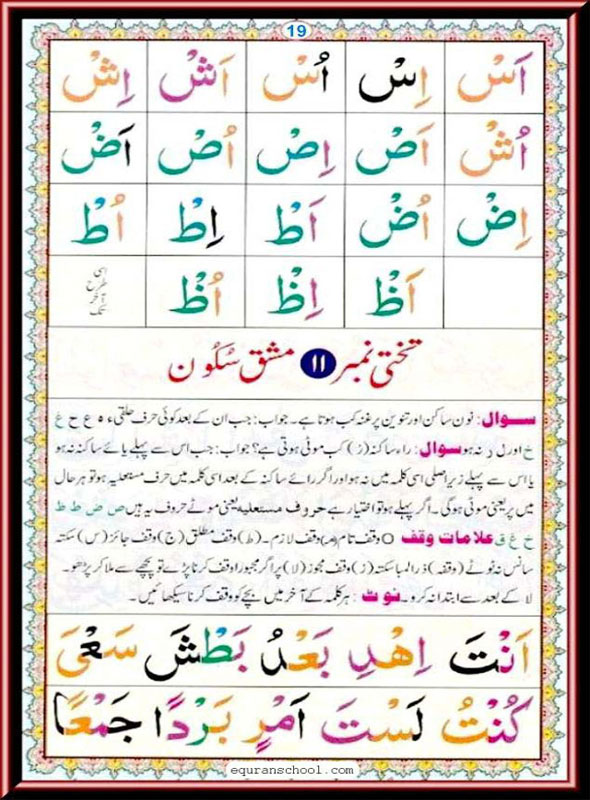 19
اَسْ اِسْ اُسْ اَشْ اِشْ
اُشْ اَصْ اِصْ اُصْ اَضْ
اِضْ اُضْ اَطْ اِطْ اُطْ
اَظْ اِظْ اُظْ اسی طرح آخر تک
تختی نمبر ۱۱ مشق سُکُون
سوال: نون ساکن اور تنوین پر غنہ کب ہوتا ہے۔ جواب: جب ان کے بعد کوئی حرف حلقی ء ہ ع ح غ
خ اور ل ر نہ ہو سوال: راء ساکنہ (رْ) کب موٹی ہوتی ہے؟ جواب: جب اس سے پہلے یائے ساکنہ نہ ہو
یا اس سے پہلے زیر اصلی اسی کلمہ میں نہ ہو اور اگر رائے ساکنہ کے بعد اسی کلمہ میں حرف مستعلیہ ہو تو ہر حال
میں پُر یعنی موٹی ہوگی۔ اگر پہلے ہو تو اختیار ہے حروف مستعلیہ یعنی موٹے حروف یہ ہیں ص ض ط ظ
خ غ ق علامات وقف O وقف تام (م) وقف لازم۔ (ط) وقف مطلق (ج) وقف جائز (س) سکتہ
سانس نہ ٹوٹے (وقفہ) ذرا لمبا سکتہ (ز) وقف مجوز (لا) پر اگر مجبورا وقف کرنا پڑے تو پیچھے سے ملا کر پڑھو۔
لا کے بعد سے ابتدا نہ کرو۔ نوٹ: ہر کلمہ کے آخر میں بچے کو وقف کرنا سیکھائیں۔
اَنْتَ اِهْدِ بَعْدُ بَطْشَ سَعْیَ
كُنْتُ لَسْتَ اَمْرٍ بَرْدًا جَمْعًا
equranschool.com